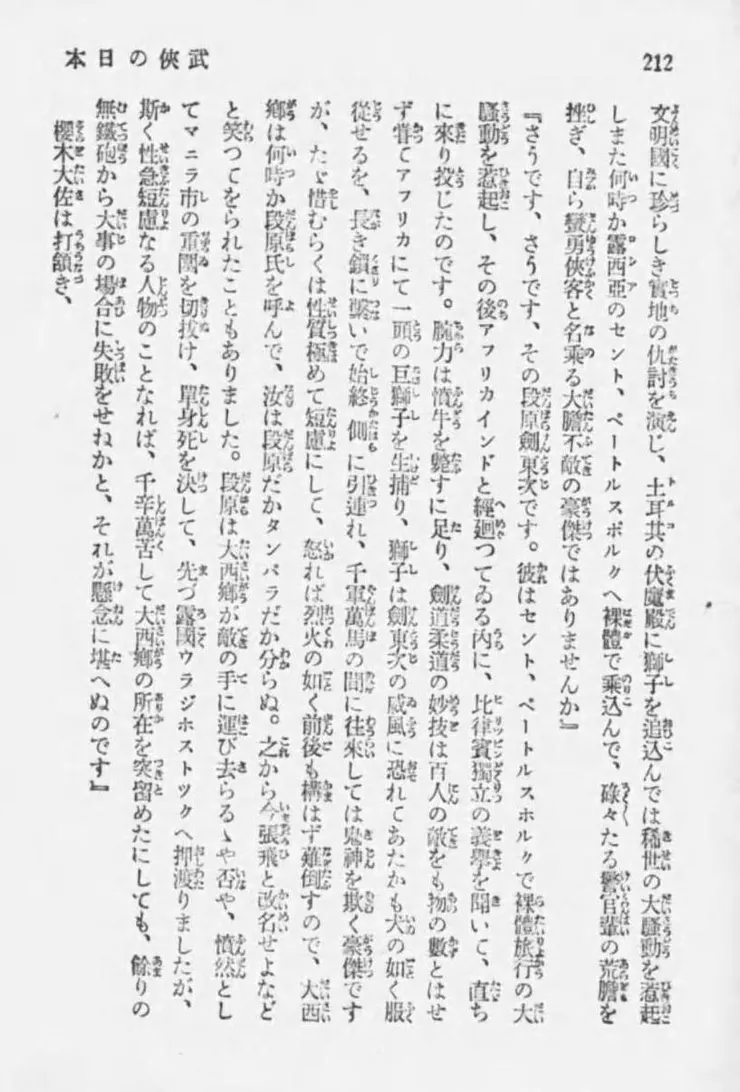 武俠の日本
212
文明國に珍らしき實地の仇討を演じ、土耳其の伏魔殿に獅子を追込んでは稀世の大騷動を惹起
しまた何時か露西亞のセント、ペートルスボルクへ裸體で乘込んで、碌々たる警官輩の荒膽を
挫ぎ、自ら蠻勇俠客と名乘る大膽不敵の豪傑ではありませんか』
『さうです、さうです、その段原劍東次です。彼はセント、ペートルスホルクで裸體旅行の大
騷動を惹起し、その後アフリカインドと經廻つてゐる內に、比律賓獨立の義擧を聞いて、直ち
に來り投じたのです。腕力は憤牛を斃すに足り、劍道柔道の妙技は百人の敵をも物の數とはせ
ず甞てアフリカにて一頭の巨獅子を生捕り、獅子は劍東次の威風に恐れてあたかも犬の如く服
從せるを、長き鎖に繫いで始終側に引連れ、千軍萬馬の間に往來しては鬼神を欺く豪傑です
が、たゞ惜むらくは性質極めて短慮にして、怒れば烈火の如く前後も構はず薙倒すので、大西
鄕は何時か段原氏を呼んで、汝は段原だかタンバラだか分らぬ。之から今張飛と改名せよなど
と笑つてをられたこともありました。段原は大西鄕が敵の手に運び去らるゝや否や、憤然とし
てマニラ市の重圍を切拔け、單身死を決して、先づ露國ウラジホストツクへ押渡りましたが、
斯く性急短慮なる人物のことなれば、千辛萬苦して大西鄕の所在を突留めたにしても、餘りの
無鐵砲から大事の場合に失敗をせねかと、それが懸念に堪へぬのです』
櫻木大佐は打頷き、